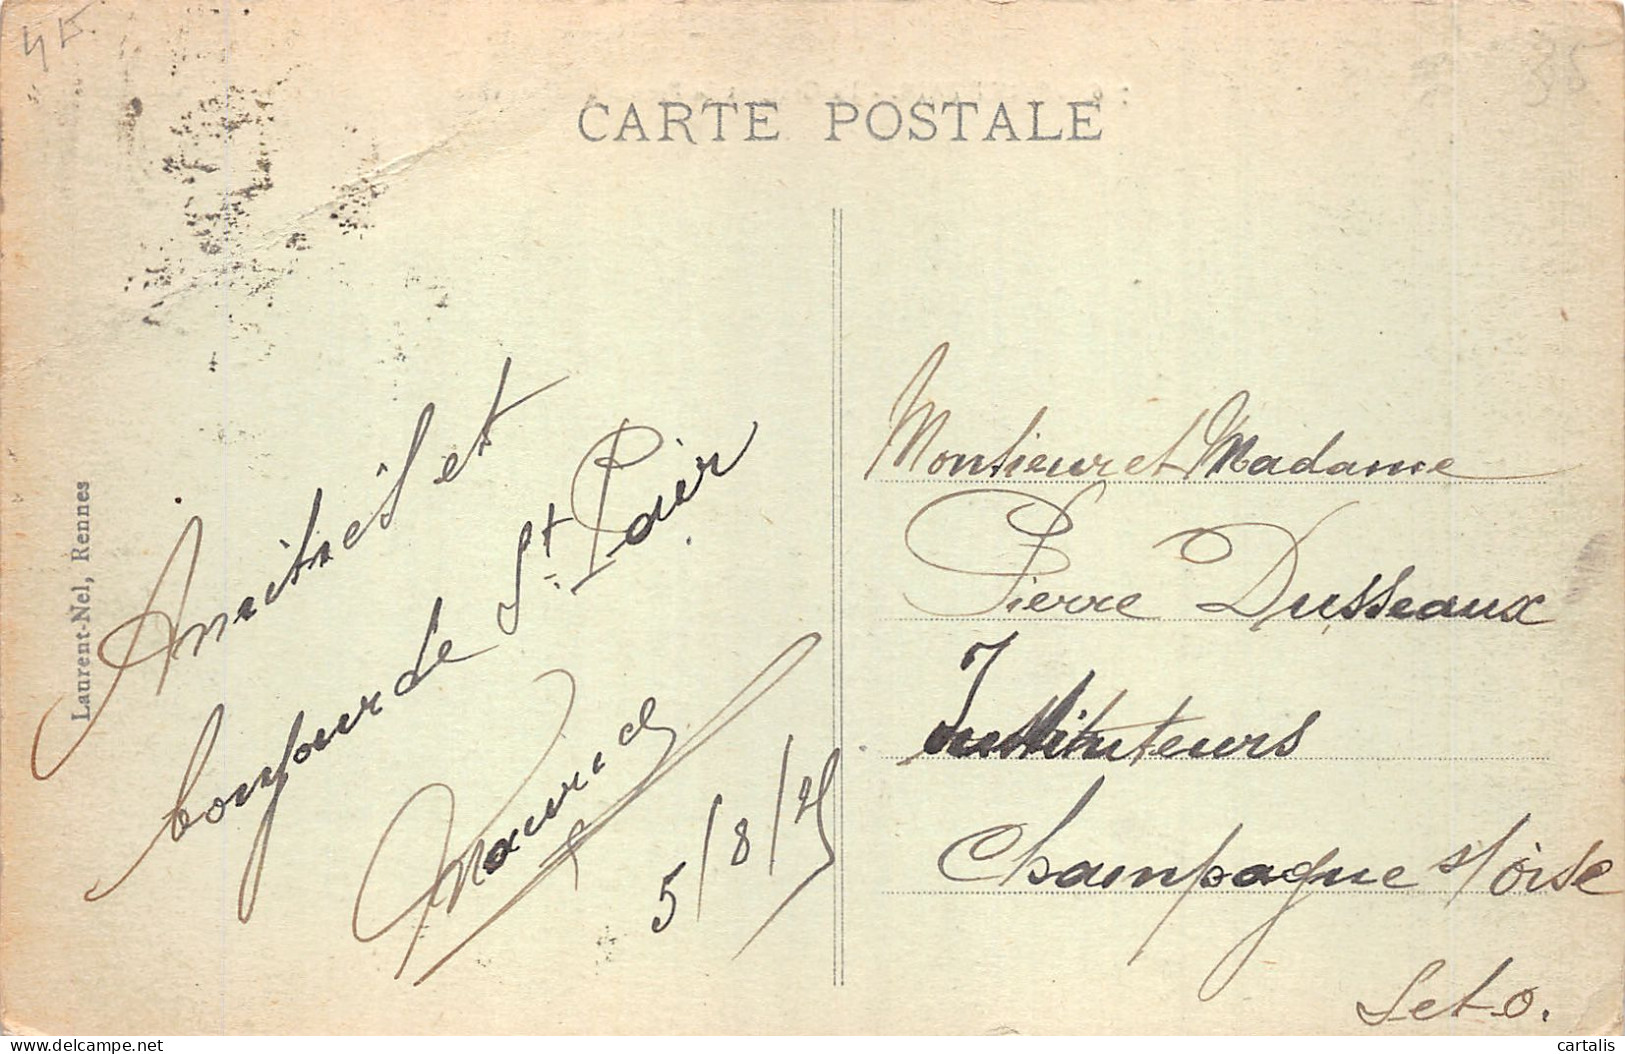 CARTE POSTALE
35
Laurent-Nel, Rennes
Amitiés et
bonjour de St. Pair
Maurice
5/8/25
Monsieur et Madame
Pierre Dusseaux
Instituteurs
Champagne s/Oise
S et O.
cartalis
delcampe.net